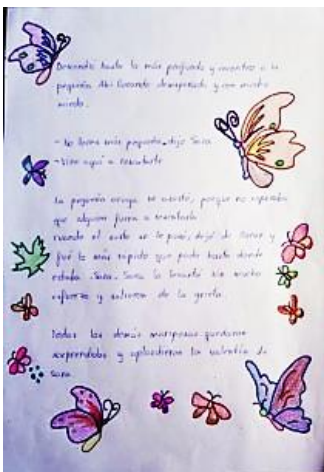 Descendió hasta lo más profundo y encontró a la
pequeña Abi llorando desesperada y con mucho
miedo.
- No llores más pequeña, dijo Sara
- Vine aquí a rescatarte
La pequeña oruga se asustó, porque no esperaba
que alguien fuera a rescatarla
cuando el susto se le pasó, dejó de llorar y
fué lo más rápido que pudo hasta donde
estaba Sara. Sara la levantó sin mucho
esfuerzo y salieron de la grieta.
Todas las demás mariposas quedaron
sorprendidas y aplaudieron la valentía de
Sara.